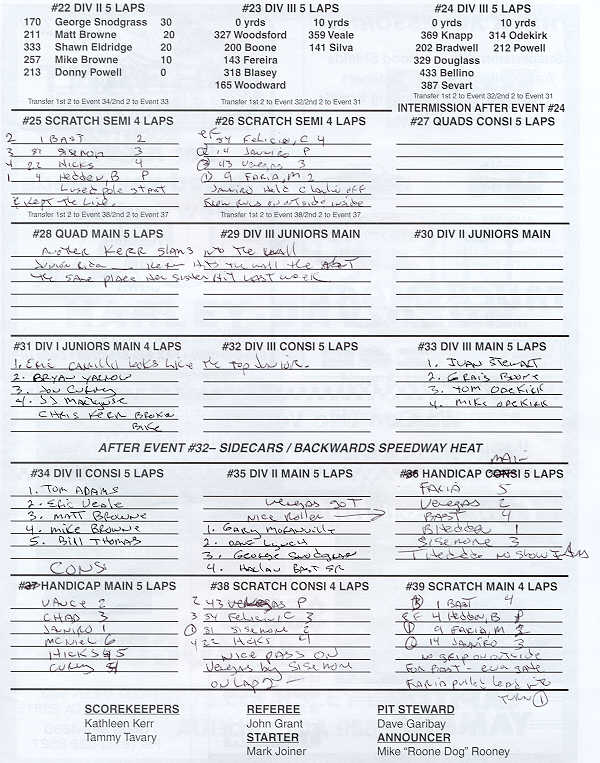 #22 DIV II 5 LAPS
170 George Snodgrass 30
211 Matt Browne 20
333 Shawn Eldridge 20
257 Mike Browne 10
213 Donny Powell 0
Transfer 1st 2 to Event 34/2nd 2 to Event 33
#23 DIV III 5 LAPS
0 yrds 10 yrds
327 Woodsford 359 Veale
200 Boone 141 Silva
143 Fereira
318 Blasey
165 Woodward
Transfer 1st 2 to Event 32/2nd 2 to Event 31
#24 DIV III 5 LAPS
0 yrds 10 yrds
369 Knapp 314 Odekirk
202 Bradwell 212 Powell
329 Douglass
433 Bellino
387 Sevart
Transfer 1st 2 to Event 32/2nd 2 to Event 31
INTERMISSION AFTER EVENT #24
#25 SCRATCH SEMI 4 LAPS
2 1 BAST 2
3 51 SISEMON 3
4 22 HICKS 4
1 4 Hedden, B P
used pole start
& kept the line.
Transfer 1st 2 to Event 38/2nd 2 to Event 37
#26 SCRATCH SEMI 4 LAPS
EF 54 Felicio, C 4
2 14 Janiro P
3 43 Venegas 3
1 9 FARIA, M 2
Janiro Held Charlie off
Transfer 1st 2 to Event 38/2nd 2 to Event 37
#27 QUADS CONSI 5 LAPS
#28 QUAD MAIN 5 LAPS
#29 DIV III JUNIORS MAIN
#30 DIV II JUNIORS MAIN
KERR SLAMS into The Wall
Kerr Hits The wall the
The same place Her Sister Hit LAST week
#31 DIV I JUNIORS MAIN 4 LAPS
1. Eric Camillo looks like The Top Junior.
2. BRYAN YARROW
3. Jon Curry
4. JJ Martynse
CHRIS KERR BROKE
BIKE
#32 DIV III CONSI 5 LAPS
#33 DIV III MAIN 5 LAPS
1. JUAN STEWART
2. Craig Boone
3. TOM ODEKIRK
4. MIKE ODEKIRK
AFTER EVENT #32– SIDECARS / BACKWARDS SPEEDWAY HEAT
#34 DIV II CONSI 5 LAPS
1. TOM ADAMS
2. Eric Veale
3. MATT BROWNE
4. MIKE BROWNE
5. BILL THOMAS
#35 DIV II MAIN 5 LAPS
Venegas got
Nice Roller
1. GARY
2. DAVE LYNCH
3. George Snodgrass
4. HARLAN BAST SR
MAIN
#36 HANDICAP CONSI 5 LAPS
FARIA 5
Venegas 2
BAST 4
B Hedden 1
Sisemore 3
T Hedden no show
CONSI
#37 HANDICAP MAIN 5 LAPS
VANCE 2
CHAD 3
JANIRO 1
MCNIEL 6
HICKS 5
Curry 4
#38 SCRATCH CONSI 4 LAPS
2 43 Venegas P
3 54 Felicio, C 3
1 51 Sisemore 2
4 22 Hicks 4
NICE PASS ON
Venegas by Sisemore
ON LAP 2
#39 SCRATCH MAIN 4 LAPS
3 1 BAST 4
EF 4 Hedden, B P
1 9 FARIA, M 2
2 14 JANIRO 3
no grip on outside
For BAST – gate
FARIA pulled lead into
TURN 1
SCOREKEEPERS
Kathleen Kerr
Tammy Tavary
REFEREE
John Grant
STARTER
Mark Joiner
PIT STEWARD
Dave Garibay
ANNOUNCER
Mike “Roone Dog” Rooney